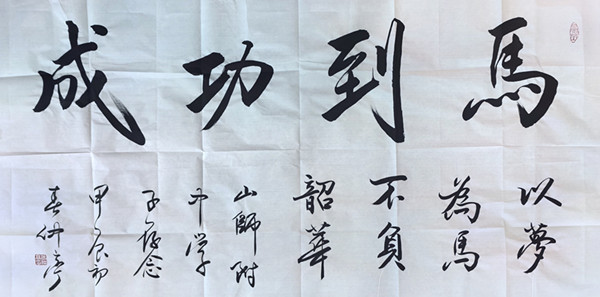 馬到功成
以夢
為馬
不負
韶華
山師附
中学
子存念
甲辰初
春